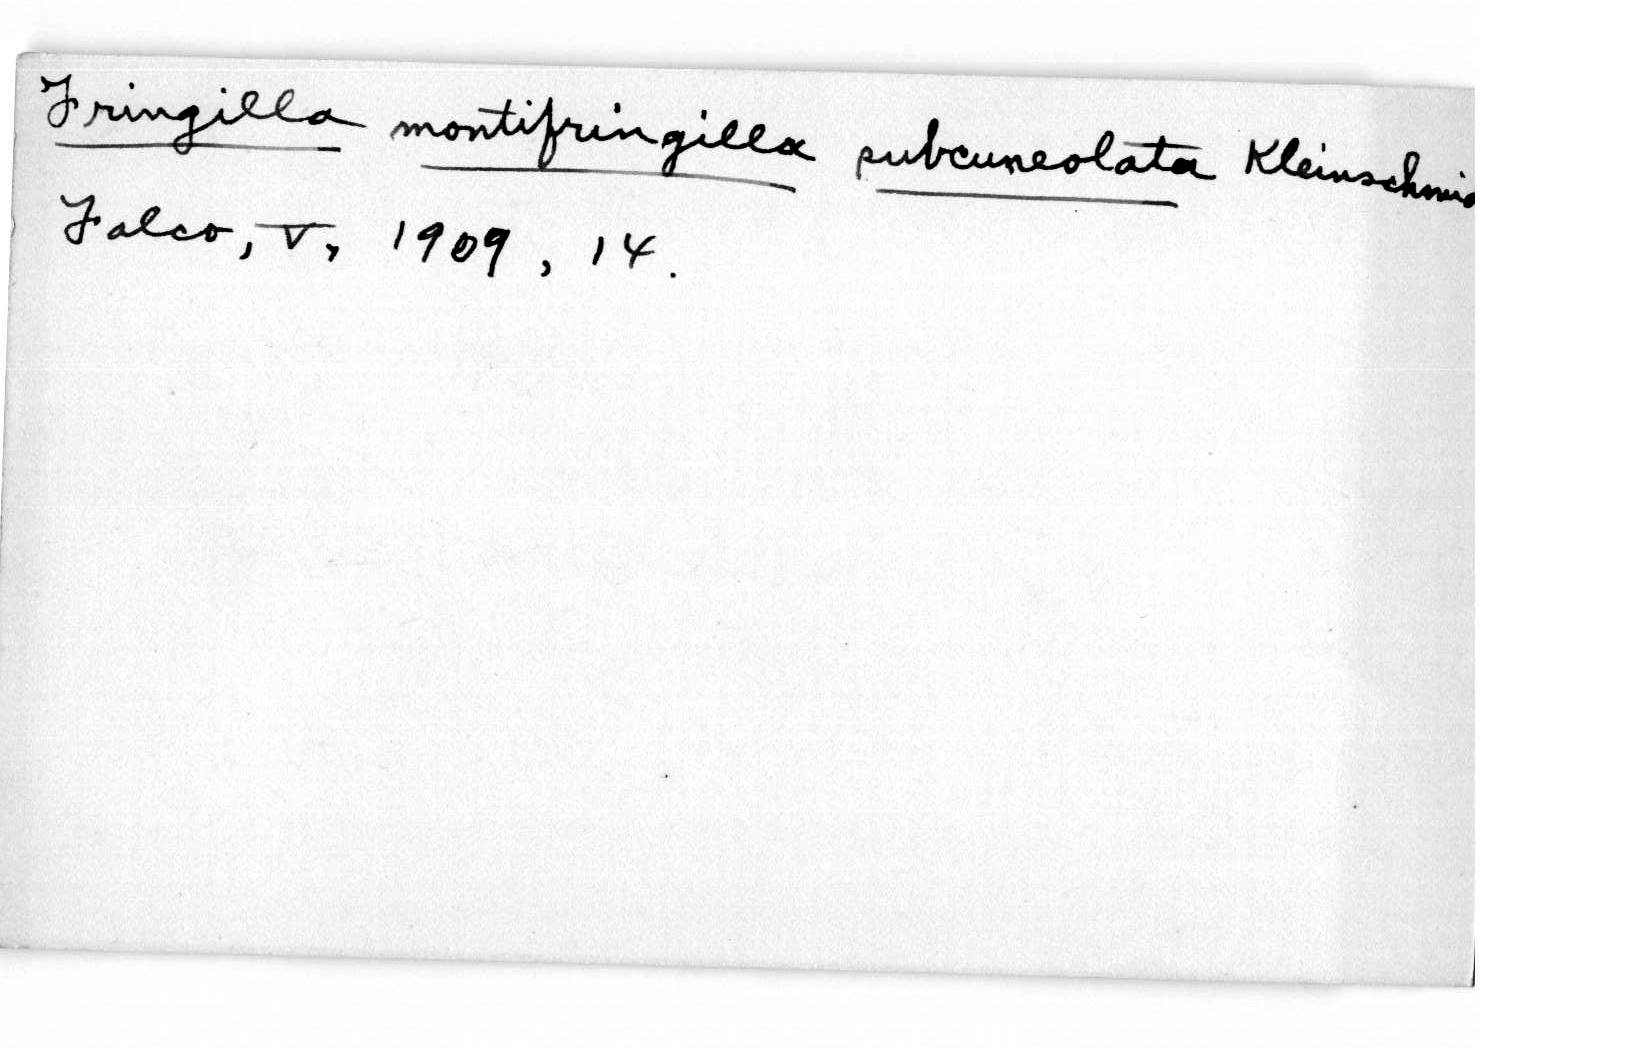 Fringilla montifringilla subcuneolata Kleinschmid
Falco, V, 1909, 14.